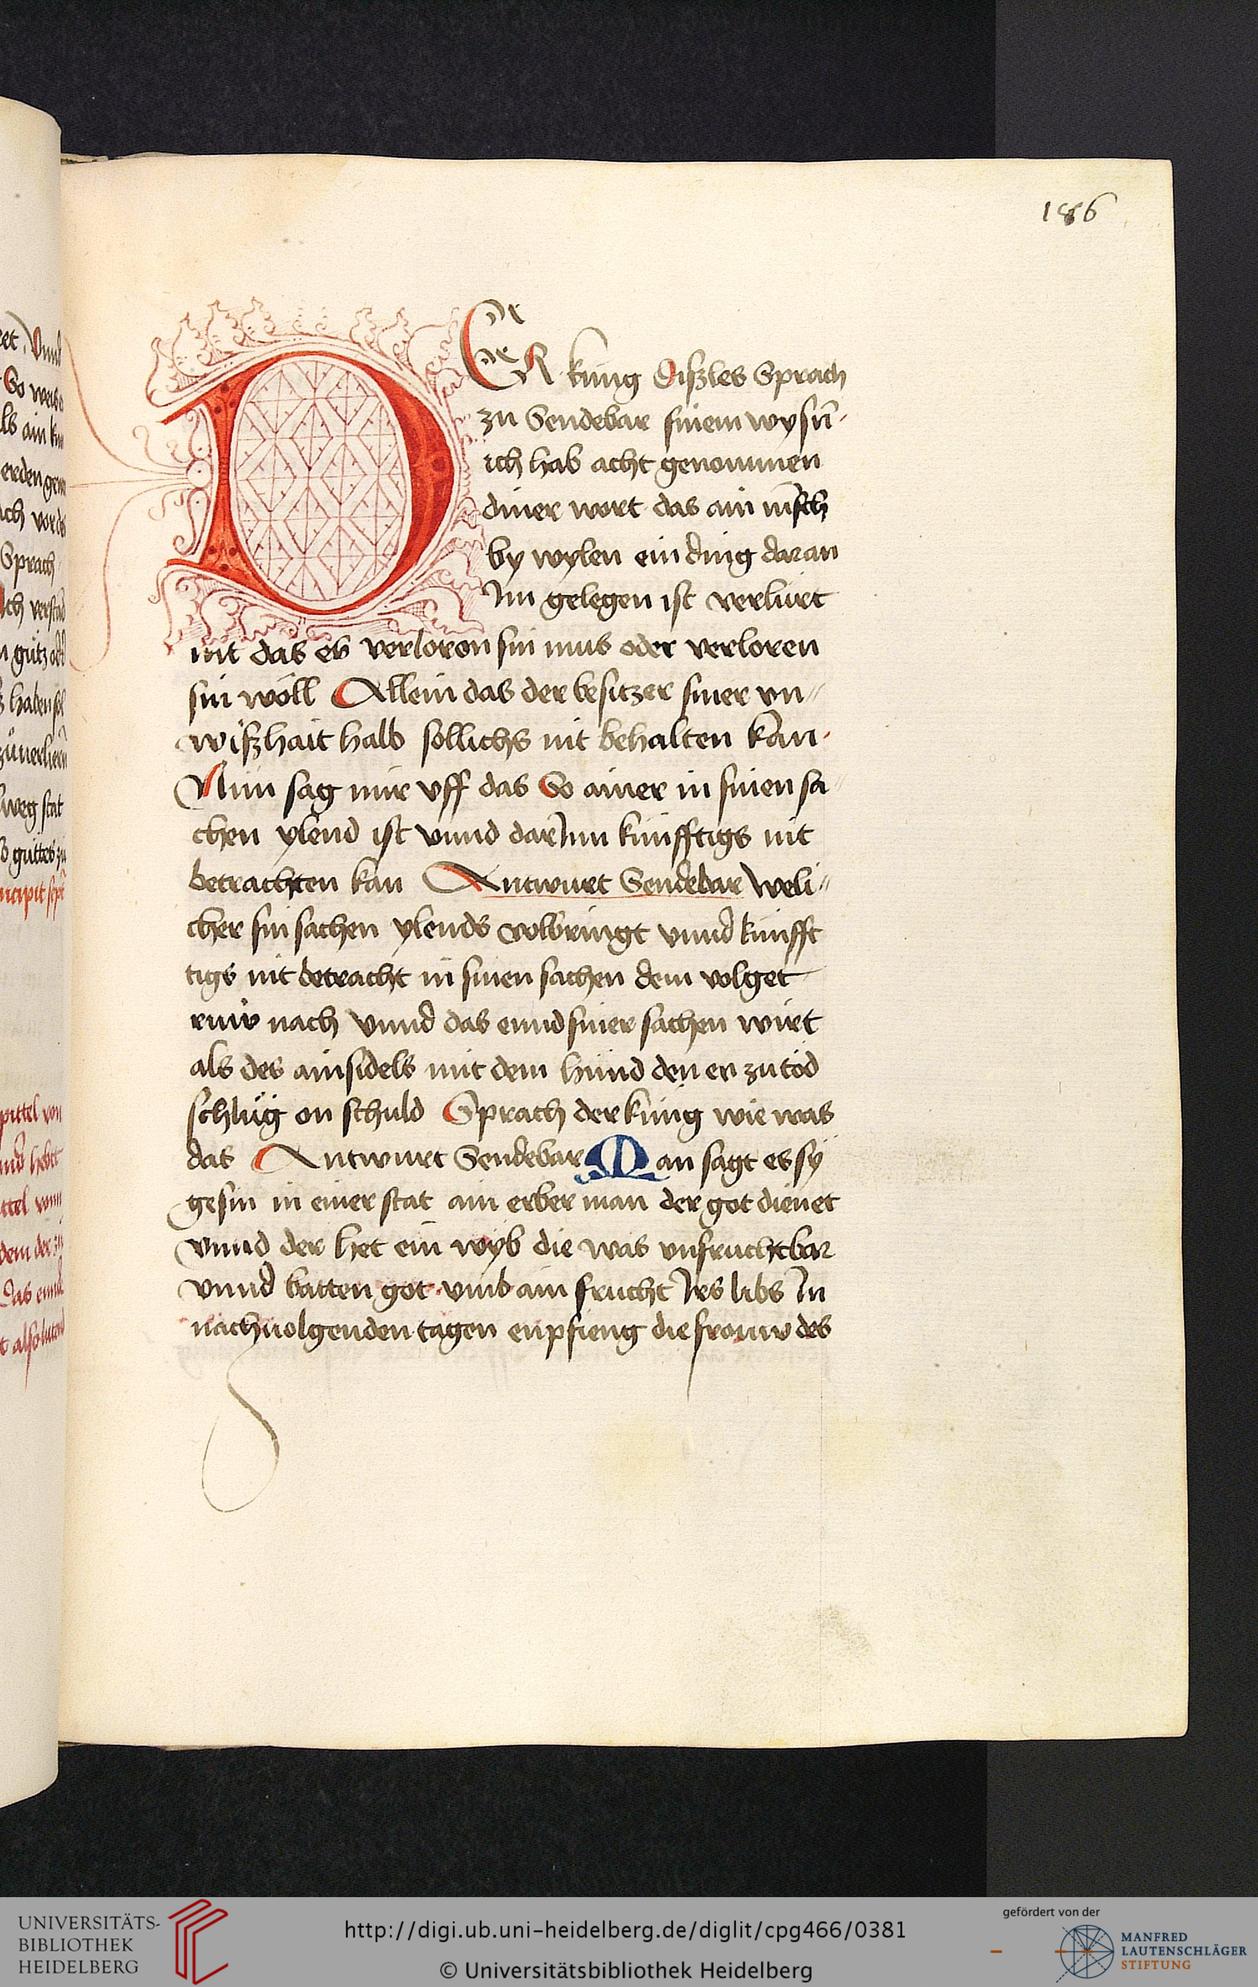 186
DER kúng dißles Sprach
zu Sendebar sinem wysñ ·
ich hab acht genommen
diner wort das ain mẽsch
by wylen ein ding daran
Im gelegen ist verlúrt
nit das es verloren sin mus oder verloren
sin wóll Allein das der besitzer siner vn//
wißhait halb sóllichs nit behalten kan ·
Nun sag mir vff das So ainer in sinen sa//
chen ylend ist vnnd darInn kúnfftigs nit
betrachten kan Antwurt Sendebar weli//
cher sin sachen ylends volbringt vnnd kúnfft
tigs nit betracht in sinen sachen dem volget
ruw nach Vnnd das ennd siner sachen wirt
als des ainsidels mit dem hund den er zu tod
schlůg on schuld Sprach der kúng wie was
das Antwurt Sendebar Man sagt es sÿ
gesin in einer stat ain erber man der got dienet
vnnd der het ein wyb die was vnfruchtbar
vnnd batten got vmb ain frucht Irs libs In
nachuolgenden tagen enpfieng die frouw des
UNIVERSITÄTS-
BIBLIOTHEK
HEIDELBERG
http://digi.ub.uni-heidelberg.de/diglit/cpg466/0381
© Universitätsbibliothek Heidelberg
gefördert von der
MANFRED
LAUTENSCHLÄGER
STIFTUNG